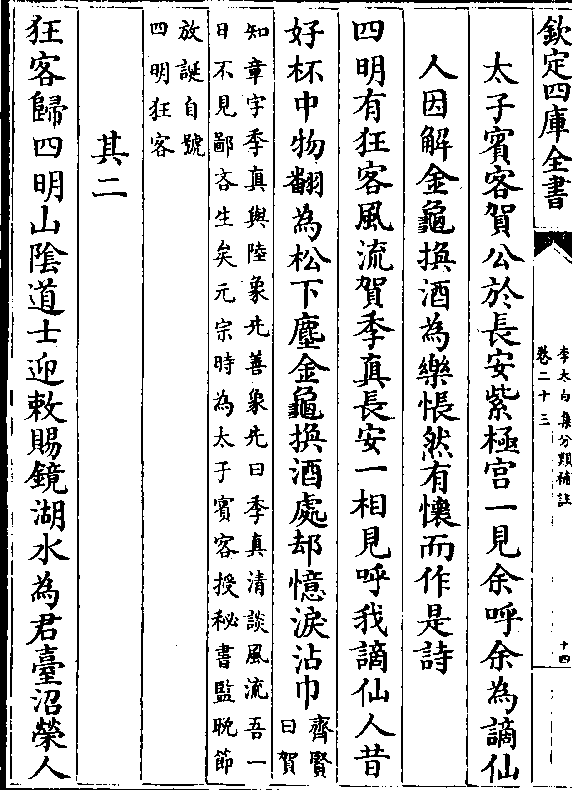 欽定四庫全書
李太白集分類補註
卷二十三
十四
太子賓客賀公於長安紫極宫一見余呼余為謫仙
人因解金龜換酒為樂悵然有懷而作是詩
四明有狂客風流賀季真長安一相見呼我謫仙人昔
好杯中物翻為松下塵金龜換酒處却憶淚沾巾
齊賢
曰賀
知章字季真與陸象先善象先曰季真清談風流吾一
日不見鄙吝生矣元宗時為太子賓客授秘書監晚節
放誕自號
四明狂客
其二
狂客歸四明山隂道士迎敕賜鏡湖水為君臺沼榮人